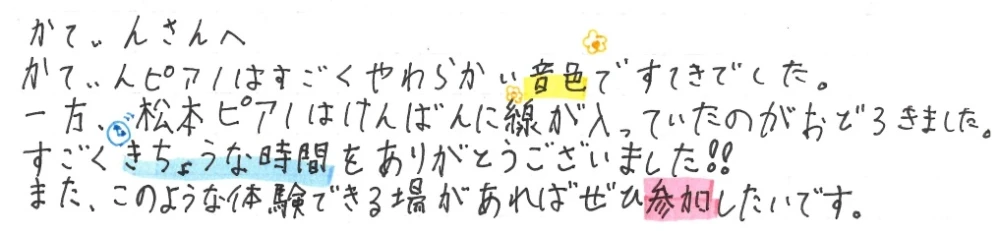 かてぃんさんへ
かてぃんピアノはすごくやわらかい音色ですてきでした。
一方、松本ピアノはけんばんに線が入っていたのがおどろきました。
すごくきちょうな時間をありがとうございました!!
また、このような体験できる場があればぜひ参加したいです。